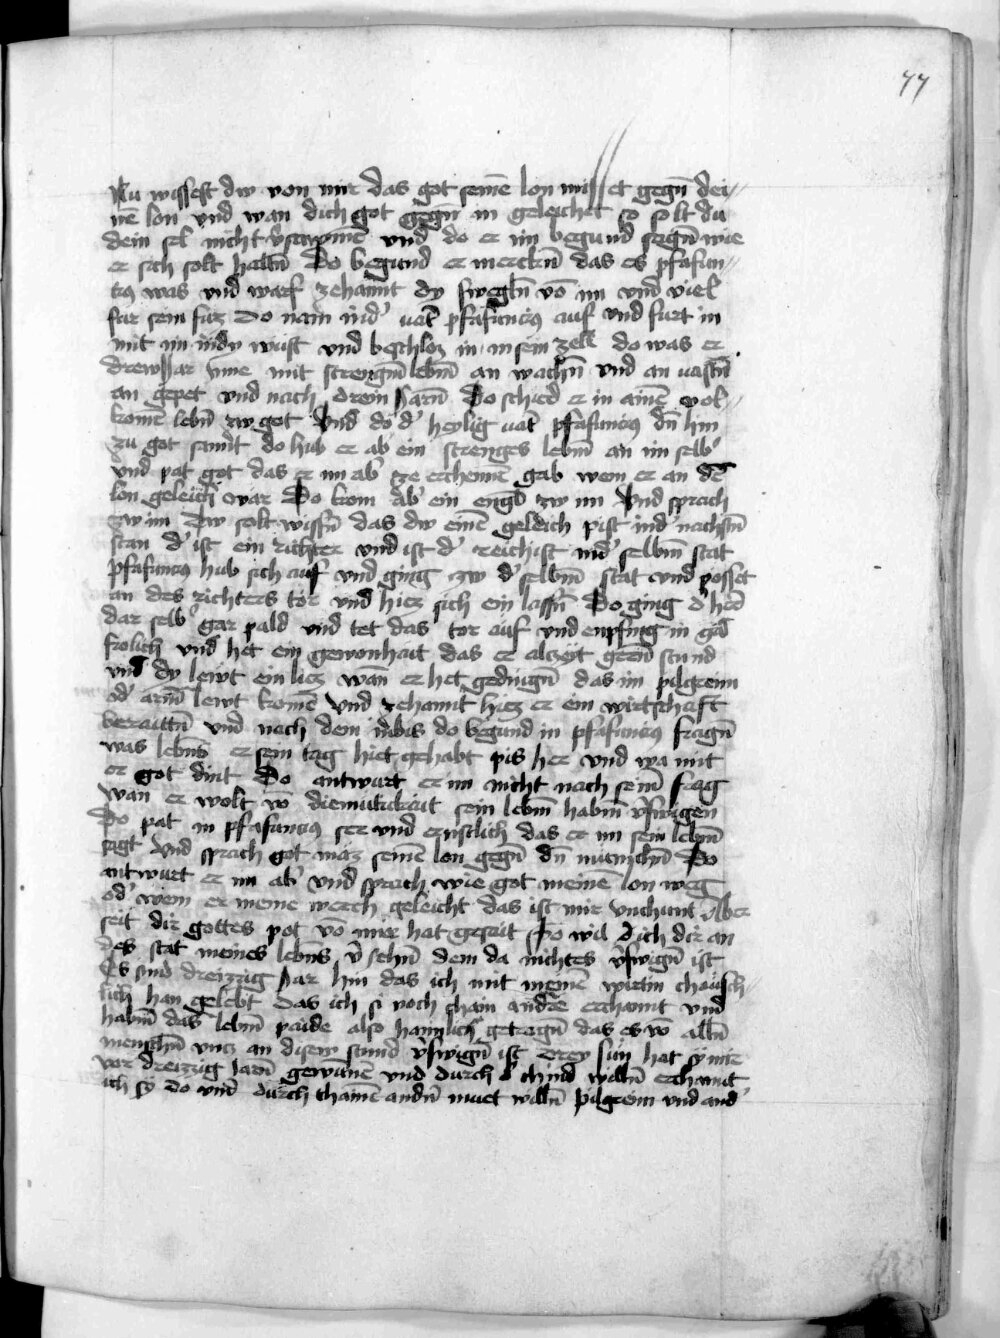 77
Nu wissest dw von mir das got seinē lon misset gegn̄ dei//
nē lon vnd wan dich got gegn̄ in geleichet so solt du
dein sel nicht v̄sawmē vnd do er im begund sagn̄ wie
er sich solt haltn̄ Do begund er merckn̄ das es pfafun//
tiꝰ was vnd warf zehannt dy swegln̄ vō im vnd viel
fur sein fuz Do nam in d' vat' pfafunciꝰ auf vnd furt in
mit im in dy wüst vnd beschloz in in sein zell do was er
drew Jar ynne mit strengm̄ lebm̄ an wachn̄ vnd an vastn̄
an gepet vnd nach drein Jarn̄ Do schied er in ainē vol//
komē lebn̄ zw got Vnd do d' heylig vat' pfafunciꝰ dn̄ hin
zu got sannt do hub er ab' ein strenges lebm̄ an im selb'
vnd pat got das er im ab' ze erchennē gab wem er an dē
lon geleich war Do kom ab' ein engl zw im Vnd sprach
zw im Dw solt wissn̄ das dw einē geleich pist in d' nachstn̄
stat d' ist ein richter vnd ist d' reichist in d' selbm̄ stat
Pfafunciꝰ hub sich auf vnd ging zw d' selbm̄ stat vnd posset
an des richters tor vnd hiez sich ein lassn̄ Do ging d' her'
dar selb' gar pald vnd tet das tor auf vnd enpfing in gar
frolich vnd het ein gewonhait das er alczeit gern̄ stund
vnd dy lewt ein liez wan er het gedingn̄ das im pilgreim
od' arm̄ lewt komē vnd zehannt hiez er ein wirtschaft
beraittn̄ vnd nach dem imbis do begund in pfafunciꝰ fragn̄
was lebn̄s er sein tag hiet gehabt pis her vnd wa mit
er got dint Do antwurt er im nicht nach seinē frag
wan er wolt vō diemutickait sein lebm̄ habm̄ v̄swigen
Do pat in pfafunciꝰ ser vnd ernstlich das er im sein lebm̄
sagt Vnd sprach got maz seinē lon gegn̄ dn̄ munichn̄ Do
antwurt er im ab' vnd sprach wie got meinē lon weg
od' wem er meine werch geleicht das ist mir vnchunt Aber
seit dir gottes pot vō mir hat gesait so wil ich dir an
des stat meines lebn̄s v̄ Jehn̄ dem da nichtes v̄swign̄ ist
Es sind dreizzig Jar hin das ich mit meinē wirtin cheusch//
lich han gelebt das ich si noch chain andre erchannt vnd
habm̄ das lebm̄ paide also haimlich getragn̄ das es vō alln̄
menschn̄ vncz an disew stund v̄swign̄ ist Drey sün hat sy mir
vor dreizzig Jarn̄ gewūnē vnd durch d' chind willn̄ erchannt
ich sy do vnd durch chainē andn̄ muet willn̄ pilgreim vnd and'